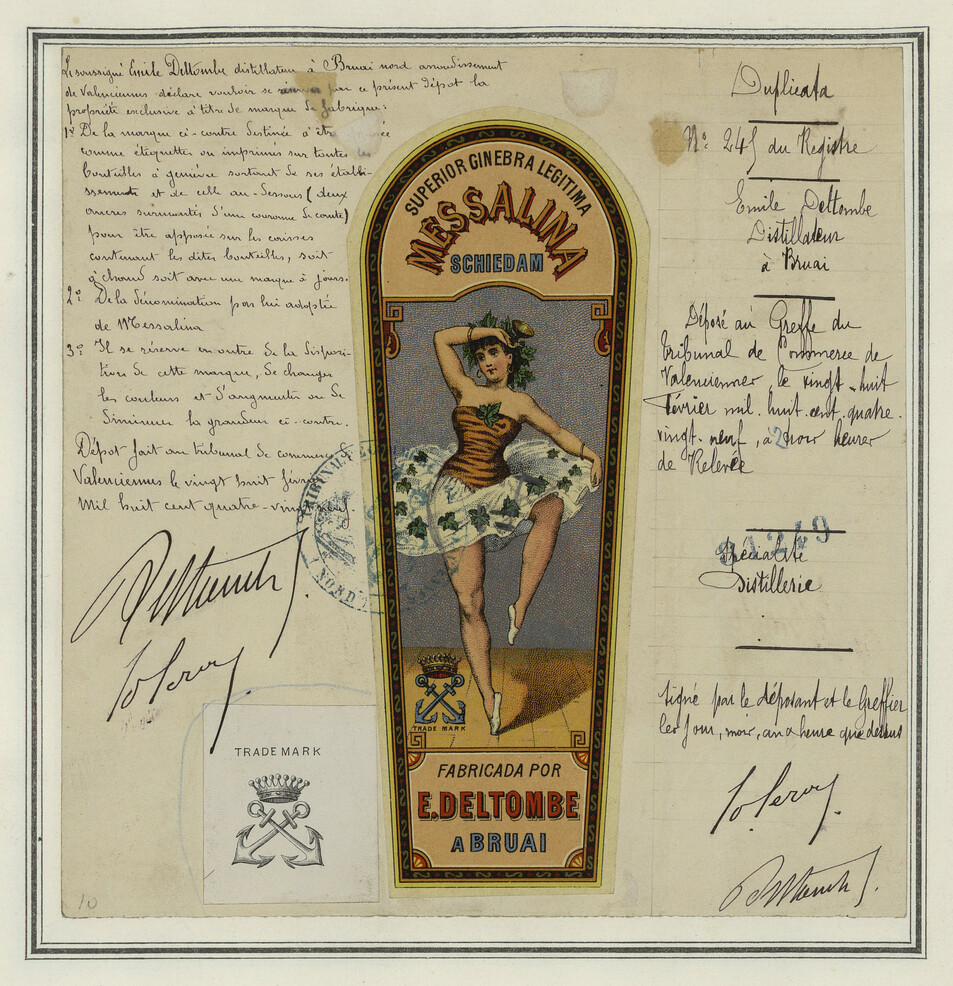 Le soussigné Emile Deltombe distillateur à Bruai nord arrondissement
de Valenciennes déclare vouloir se réserver par ce présent dépot la
propriété exclusive à titre de marque de fabrique:
1º De la marque ci-contre destinée à être
comme étiquettes ou imprimés sur toutes les
bouteilles à genièvre sortant de ses établi-
ssements et de celle au-dessous (deux
ancres surmontés d'une couronne de comte)
pour être apposée sur les caisses
contenant les dites bouteilles, soit
à chaud soit avec une marque à jours.
2º De la dénomination par lui adoptée
de Messalina
3º Il se réserve en outre de la disposi-
tion de cette marque, de changer
les couleurs et d'augmenter ou de
diminuer la grandeur ci-contre.
Dépot fait au tribunal de commerce
Valenciennes le vingt huit février
mil huit cent quatre-vingt neuf.
TRADE MARK
SUPERIOR GINEBRA LEGITIMA
MESSALINA
SCHIEDAM
TRADE MARK
FABRICADA POR
E. DELTOMBE
A BRUAI
TRIBUNAL
NORD
Duplicata
Nº 245 du Registre
Emile Deltombe
Distillateur
à Bruai
Déposé au Greffe du
Tribunal de Commerce de
Valenciennes, le vingt-huit
février mil huit cent quatre-
vingt-neuf, à 2 heures
de Relevée
Spécialité
Distillerie
Signé par le déposant et le Greffier
les jour, mois, an & heure que dessus
10